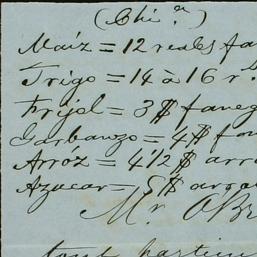 (Chi.ª)
Maíz = 12 reales fa
Trigo = 14 a 16 r.
Frijol = 3$ faneg
Garbanzo = 4$ fan
Arróz = 4 1/2 $ arro
Azucar = 5$ arro
Mr. O'Br